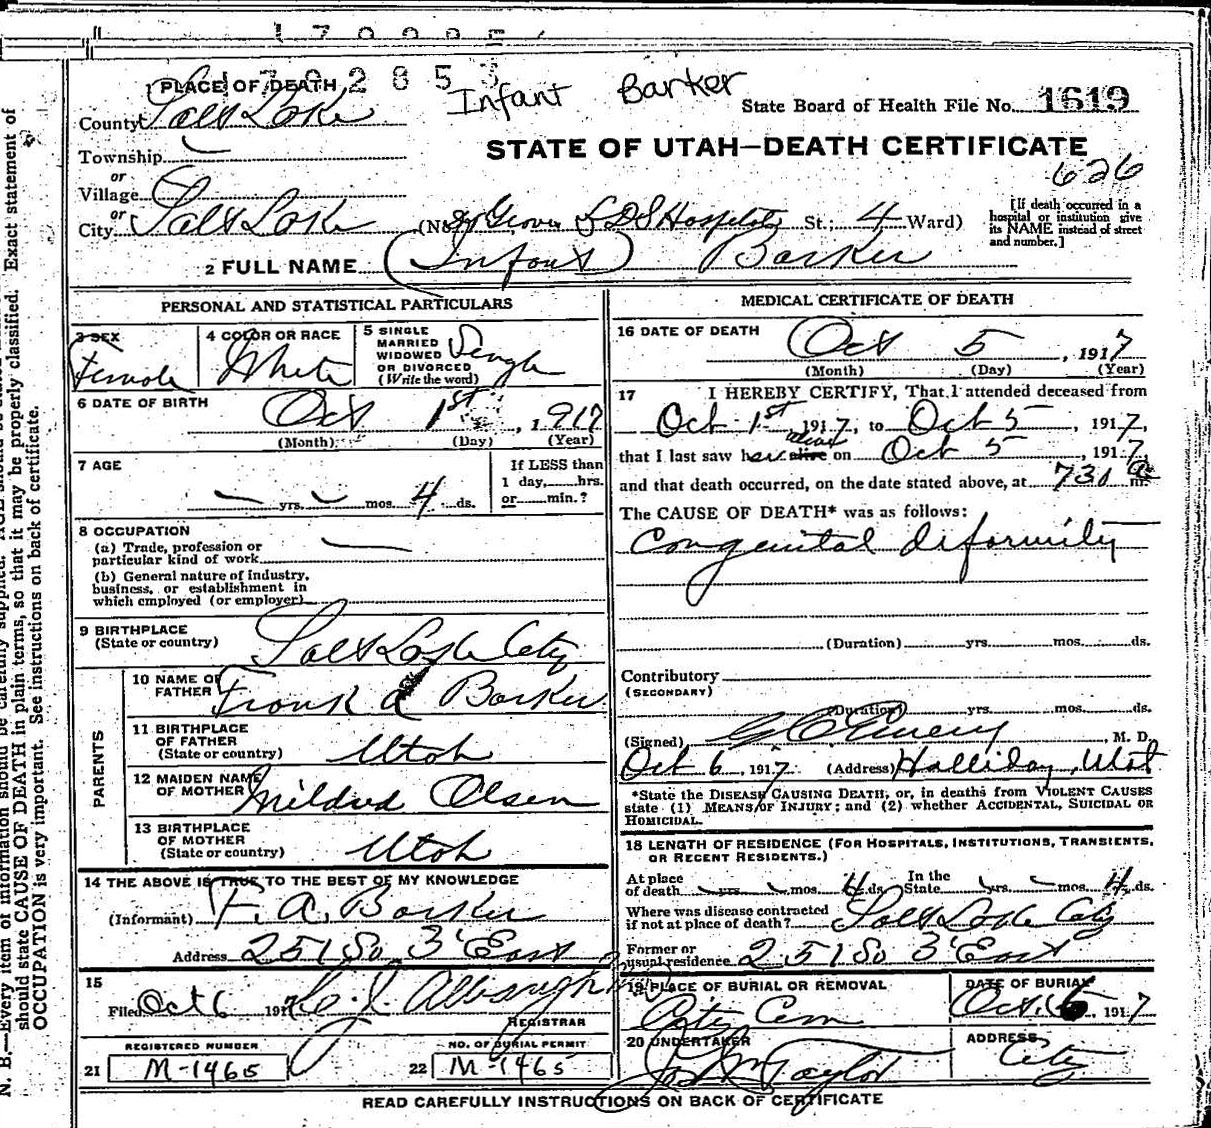 PLACE OF DEATH
Infant Barker
State Board of Health File No. 1619
County Salt Lake
STATE OF UTAH—DEATH CERTIFICATE
Township
or
Village
626
or
City Salt Lake (No. Groves LDS Hospital St.; 4 Ward)
[If death occurred in a hospital or institution give its NAME instead of street and number.]
2 FULL NAME (Infant) Barker
PERSONAL AND STATISTICAL PARTICULARS
3 SEX
Female
4 COLOR OR RACE
White
5 SINGLE MARRIED WIDOWED OR DIVORCED (Write the word)
Single
6 DATE OF BIRTH
Oct 1st, 1917
(Month) (Day) (Year)
7 AGE
yrs. mos. 4 ds.
If LESS than 1 day, hrs. or min.?
8 OCCUPATION
(a) Trade, profession or particular kind of work
(b) General nature of industry, business, or establishment in which employed (or employer)
9 BIRTHPLACE
(State or country) Salt Lake City
PARENTS
10 NAME OF FATHER Frank A Barker
11 BIRTHPLACE OF FATHER (State or country) Utah
12 MAIDEN NAME OF MOTHER Mildred Olsen
13 BIRTHPLACE OF MOTHER (State or country) Utah
14 THE ABOVE IS TRUE TO THE BEST OF MY KNOWLEDGE
(Informant) F. A. Barker
Address 251 So 3' East
15
Filed Oct 6 191
REGISTRAR
REGISTERED NUMBER
21 M-1465
NO. OF BURIAL PERMIT
22 M-1465
MEDICAL CERTIFICATE OF DEATH
16 DATE OF DEATH
Oct 5, 1917
(Month) (Day) (Year)
17 I HEREBY CERTIFY, That I attended deceased from
Oct 1st, 1917, to Oct 5, 1917,
that I last saw her alive on Oct 5, 1917,
and that death occurred, on the date stated above, at 730 a m.
The CAUSE OF DEATH* was as follows:
Congenital diformity
(Duration) yrs. mos. ds.
Contributory
(SECONDARY)
(Duration) yrs. mos. ds.
(Signed) M. D.
Oct 6, 1917 (Address) Halliday, Utah
*State the DISEASE CAUSING DEATH, or, in deaths from VIOLENT CAUSES
state (1) MEANS OF INJURY; and (2) whether ACCIDENTAL, SUICIDAL OR
HOMICIDAL.
18 LENGTH OF RESIDENCE (FOR HOSPITALS, INSTITUTIONS, TRANSIENTS,
OR RECENT RESIDENTS.)
At place of death yrs. mos. 4 ds. In the State yrs. mos. 4 ds.
Where was disease contracted if not at place of death? Salt Lake City
Former or usual residence 251 So 3' East
19 PLACE OF BURIAL OR REMOVAL
City Cem
DATE OF BURIAL
Oct. 6, 1917
20 UNDERTAKER
Taylor
ADDRESS
City
READ CAREFULLY INSTRUCTIONS ON BACK OF CERTIFICATE
N. B.—Every item of information should be carefully supplied.
should state CAUSE OF DEATH in plain terms, so that it may be properly classified. Exact statement of
OCCUPATION is very important. See instructions on back of certificate.